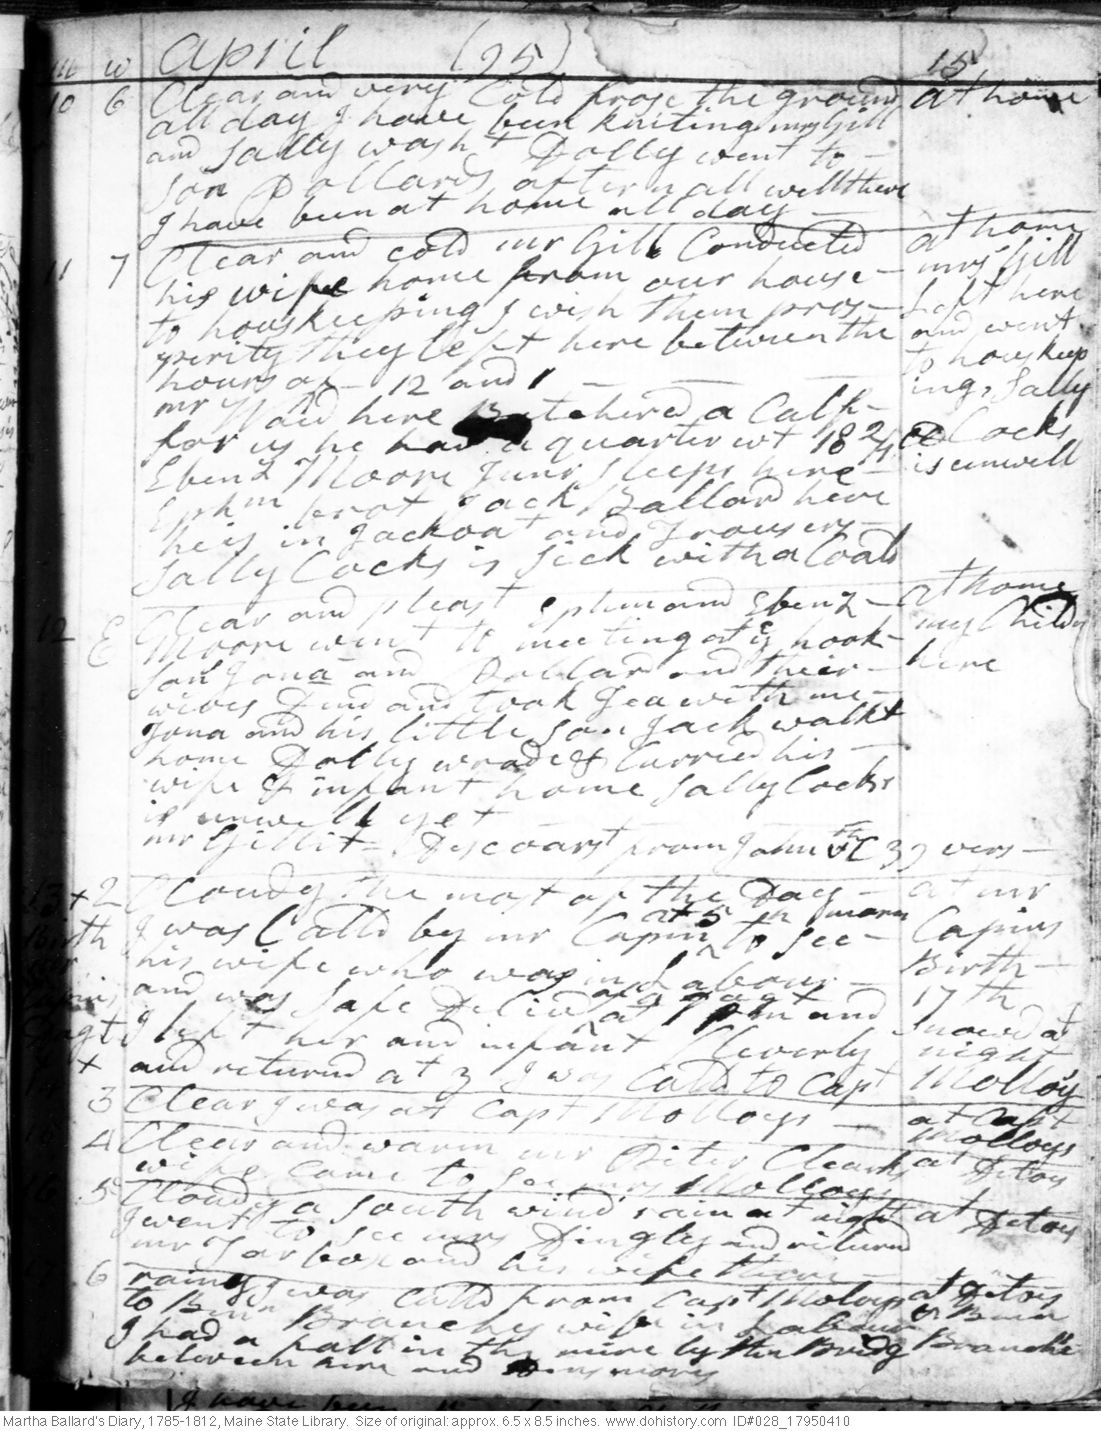 m w April (95) 15
10 6 Clear and very Cold froze the ground at home
all day I have been kniting mrs Gill
and Sally washt Dolly went to
Son Pollards aftern all well there
I have been at home all day
11 7 Clear and cold mr Gill Conducted at home
his wife home from our house mrs Gill
to houskeeping I wish them pros- Left here
perity they left here between the and went
hours of 12 and 1 to houskeep
mr Waid here Butchered a Calf ing, Sally
for us he had a quarter wt 18 2/4 Cocks
Ebenz Moore Junr sleeps here is unwell
Ephm brot Jack Ballard here
he is in Jackoat and Trousers
Sally Cocks is sick with a Coald
12 E Clear and pleast Ephm and Ebenz at home
Moore went to meeting at ye hook my Childn
Son Jona and Pollard and their here
wives Dind and took Tea with me
Jona and his little son Jack walkt
home Dolly wrode & Carried his
wife & infant home Sally Cocks
is unwell yet
mr Gillit Discoarst from John 5th C 39 vers
13 + 2 Cloudy the most of the Day at mr
at 5 h morn
Birth I was Calld by mr Capin to see Capins
his wife who was in Labour Birth
and was safe Delivd at 1 pm and 17th
I left her and infant Cleverly movd at night
+ and returned at 3 I was Calld to Capt Molloy
3 Clear I was at Capt Molloys at Capt Molloys
4 Clear and warm mr Peter Clearks at Ditoys
wife Came to see mrs Molloy
5 Cloudy a south wind rain at night at Ditoys
I went to see mrs Dingley and returnd
mr Tarbox and his wife there
6 rainy I was Calld from Capt Moloys at Ditoys
to Benn Branches wife in Labour & Benn
I had a fall in the mire by the Bridg Branchs
between here and
I have been
Martha Ballard's Diary, 1785-1812, Maine State Library. Size of original: approx. 6.5 x 8.5 inches. www.dohistory.com ID#028_17950410